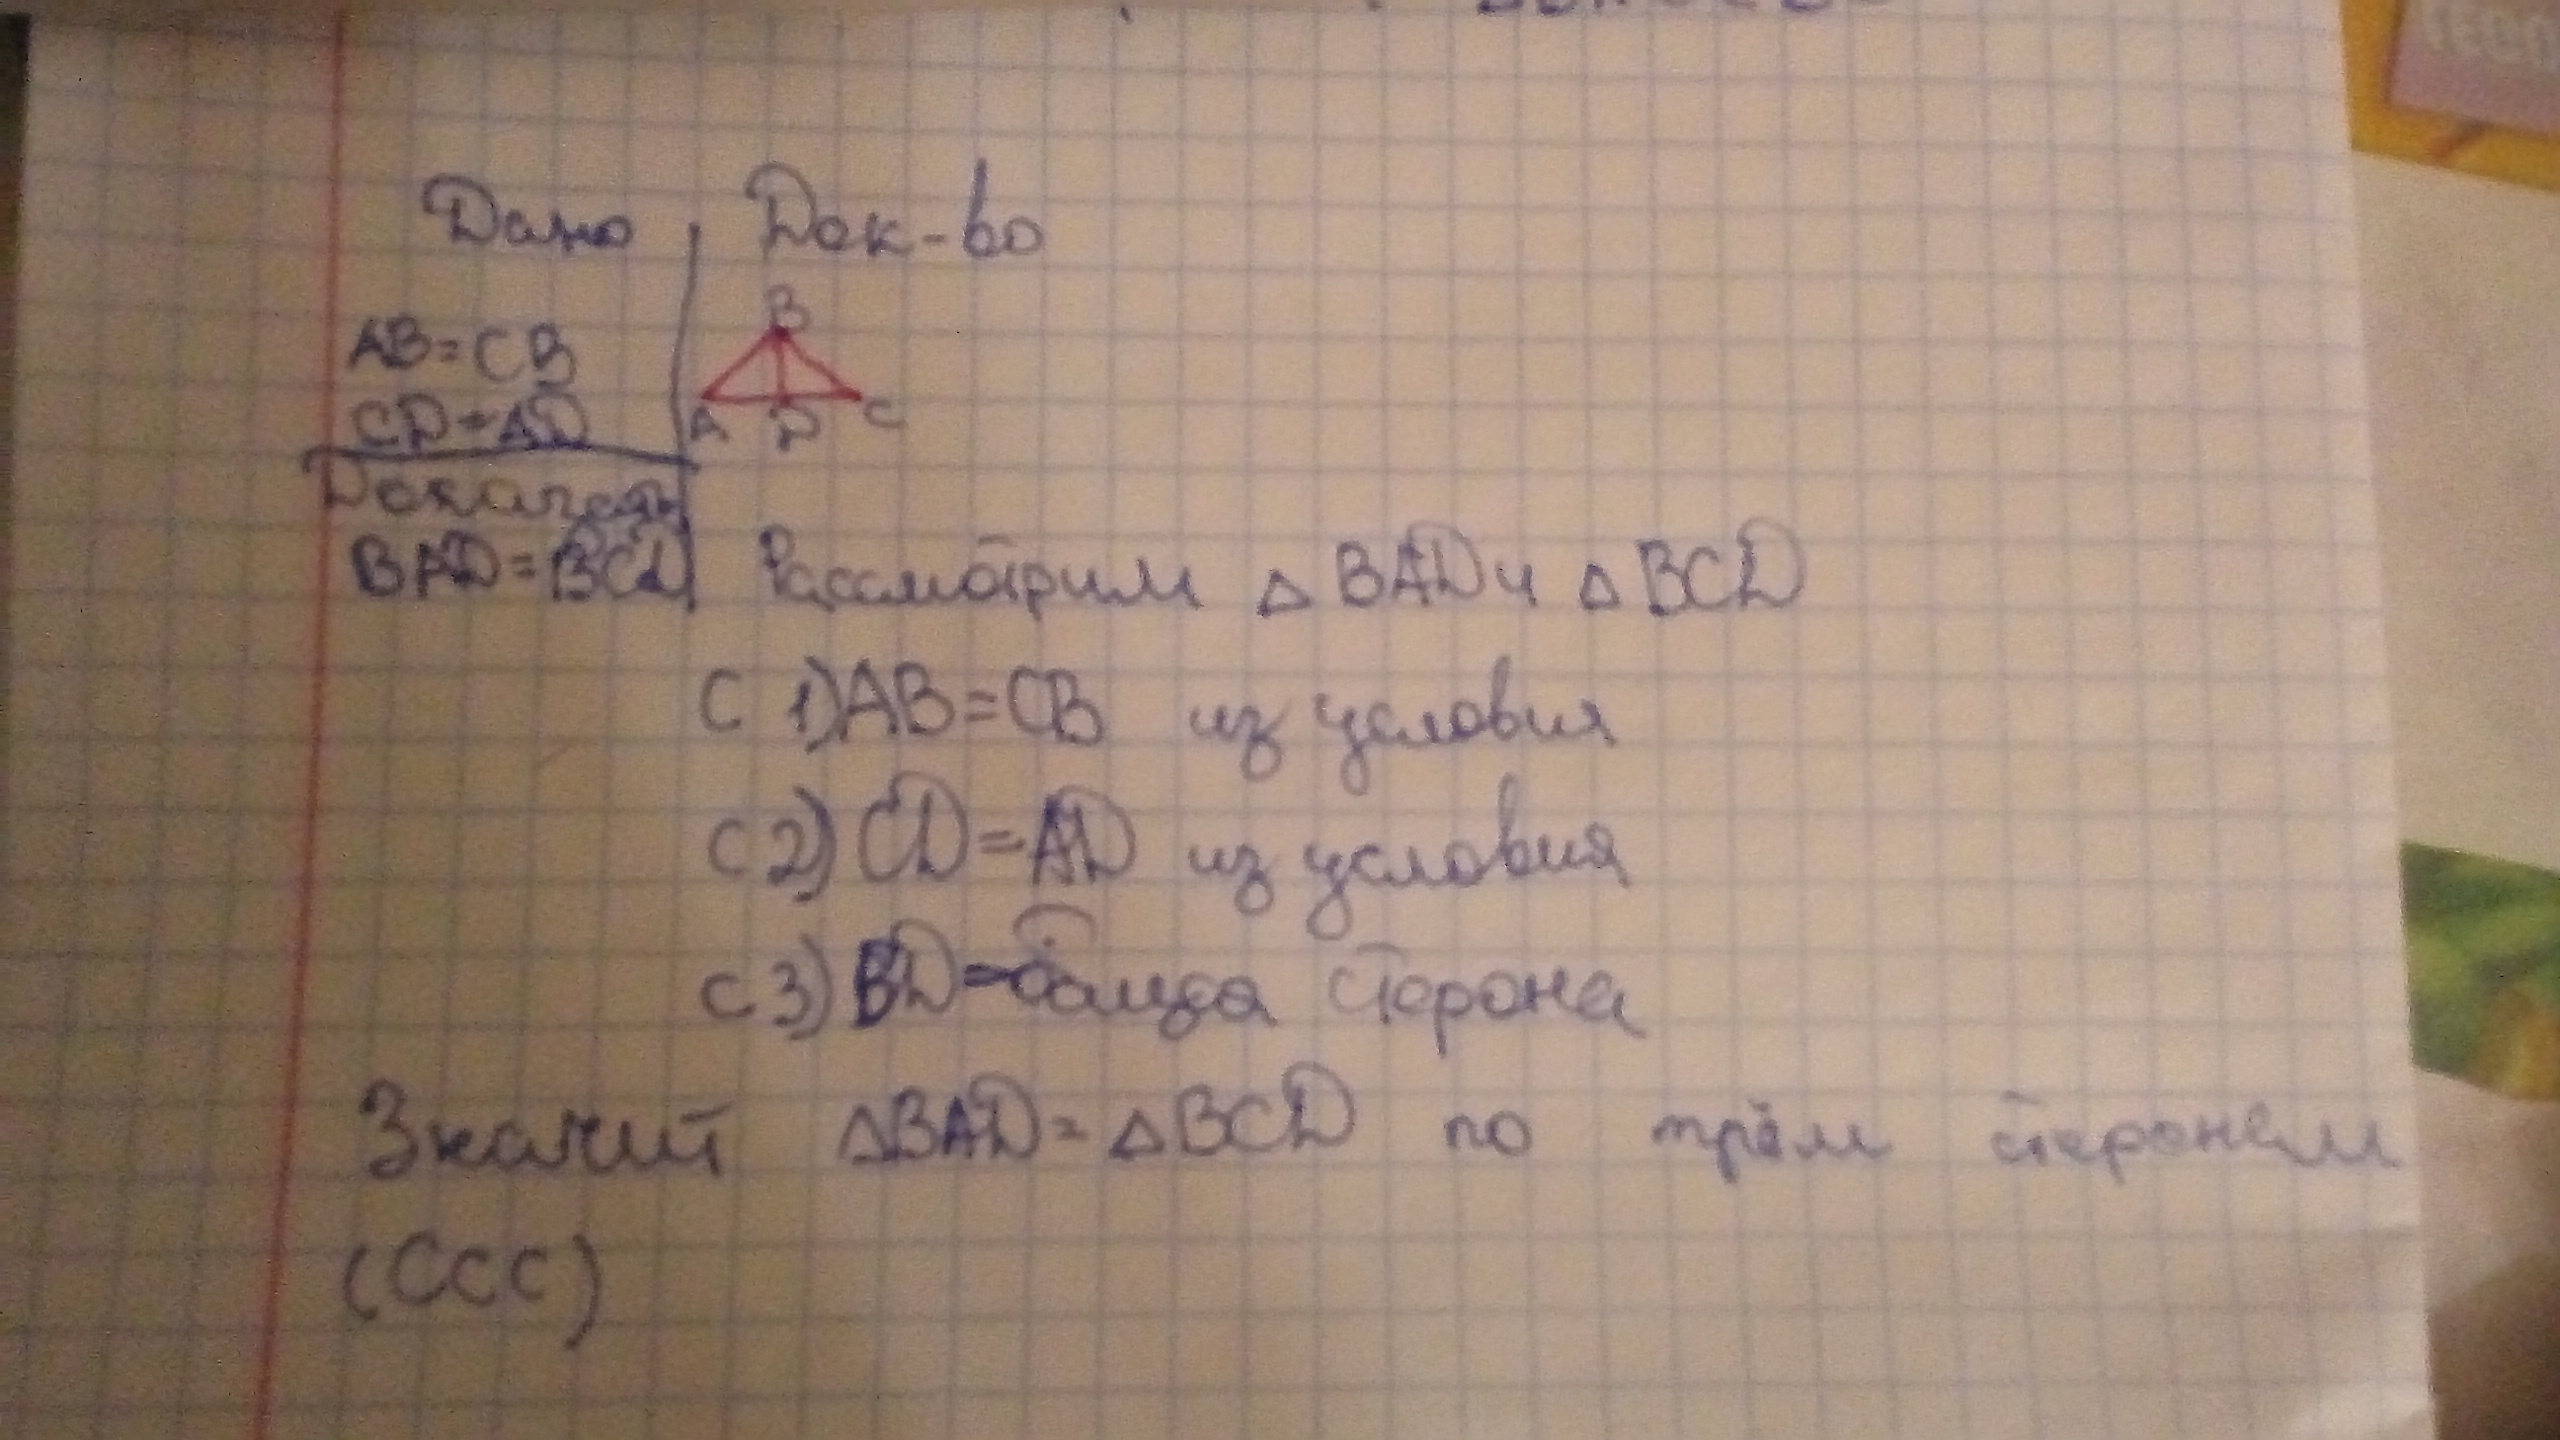 Дано Док-во
AB=CB
CD=AD
B
A D C
Доказать
BAD=BCD
Рассмотрим △ BAD и △ BCD
С 1) AB=CB из условия
С 2) CD=AD из условия
С 3) BD-общая сторона
Значит △BAD=△BCD по трём сторонам
(ССС)